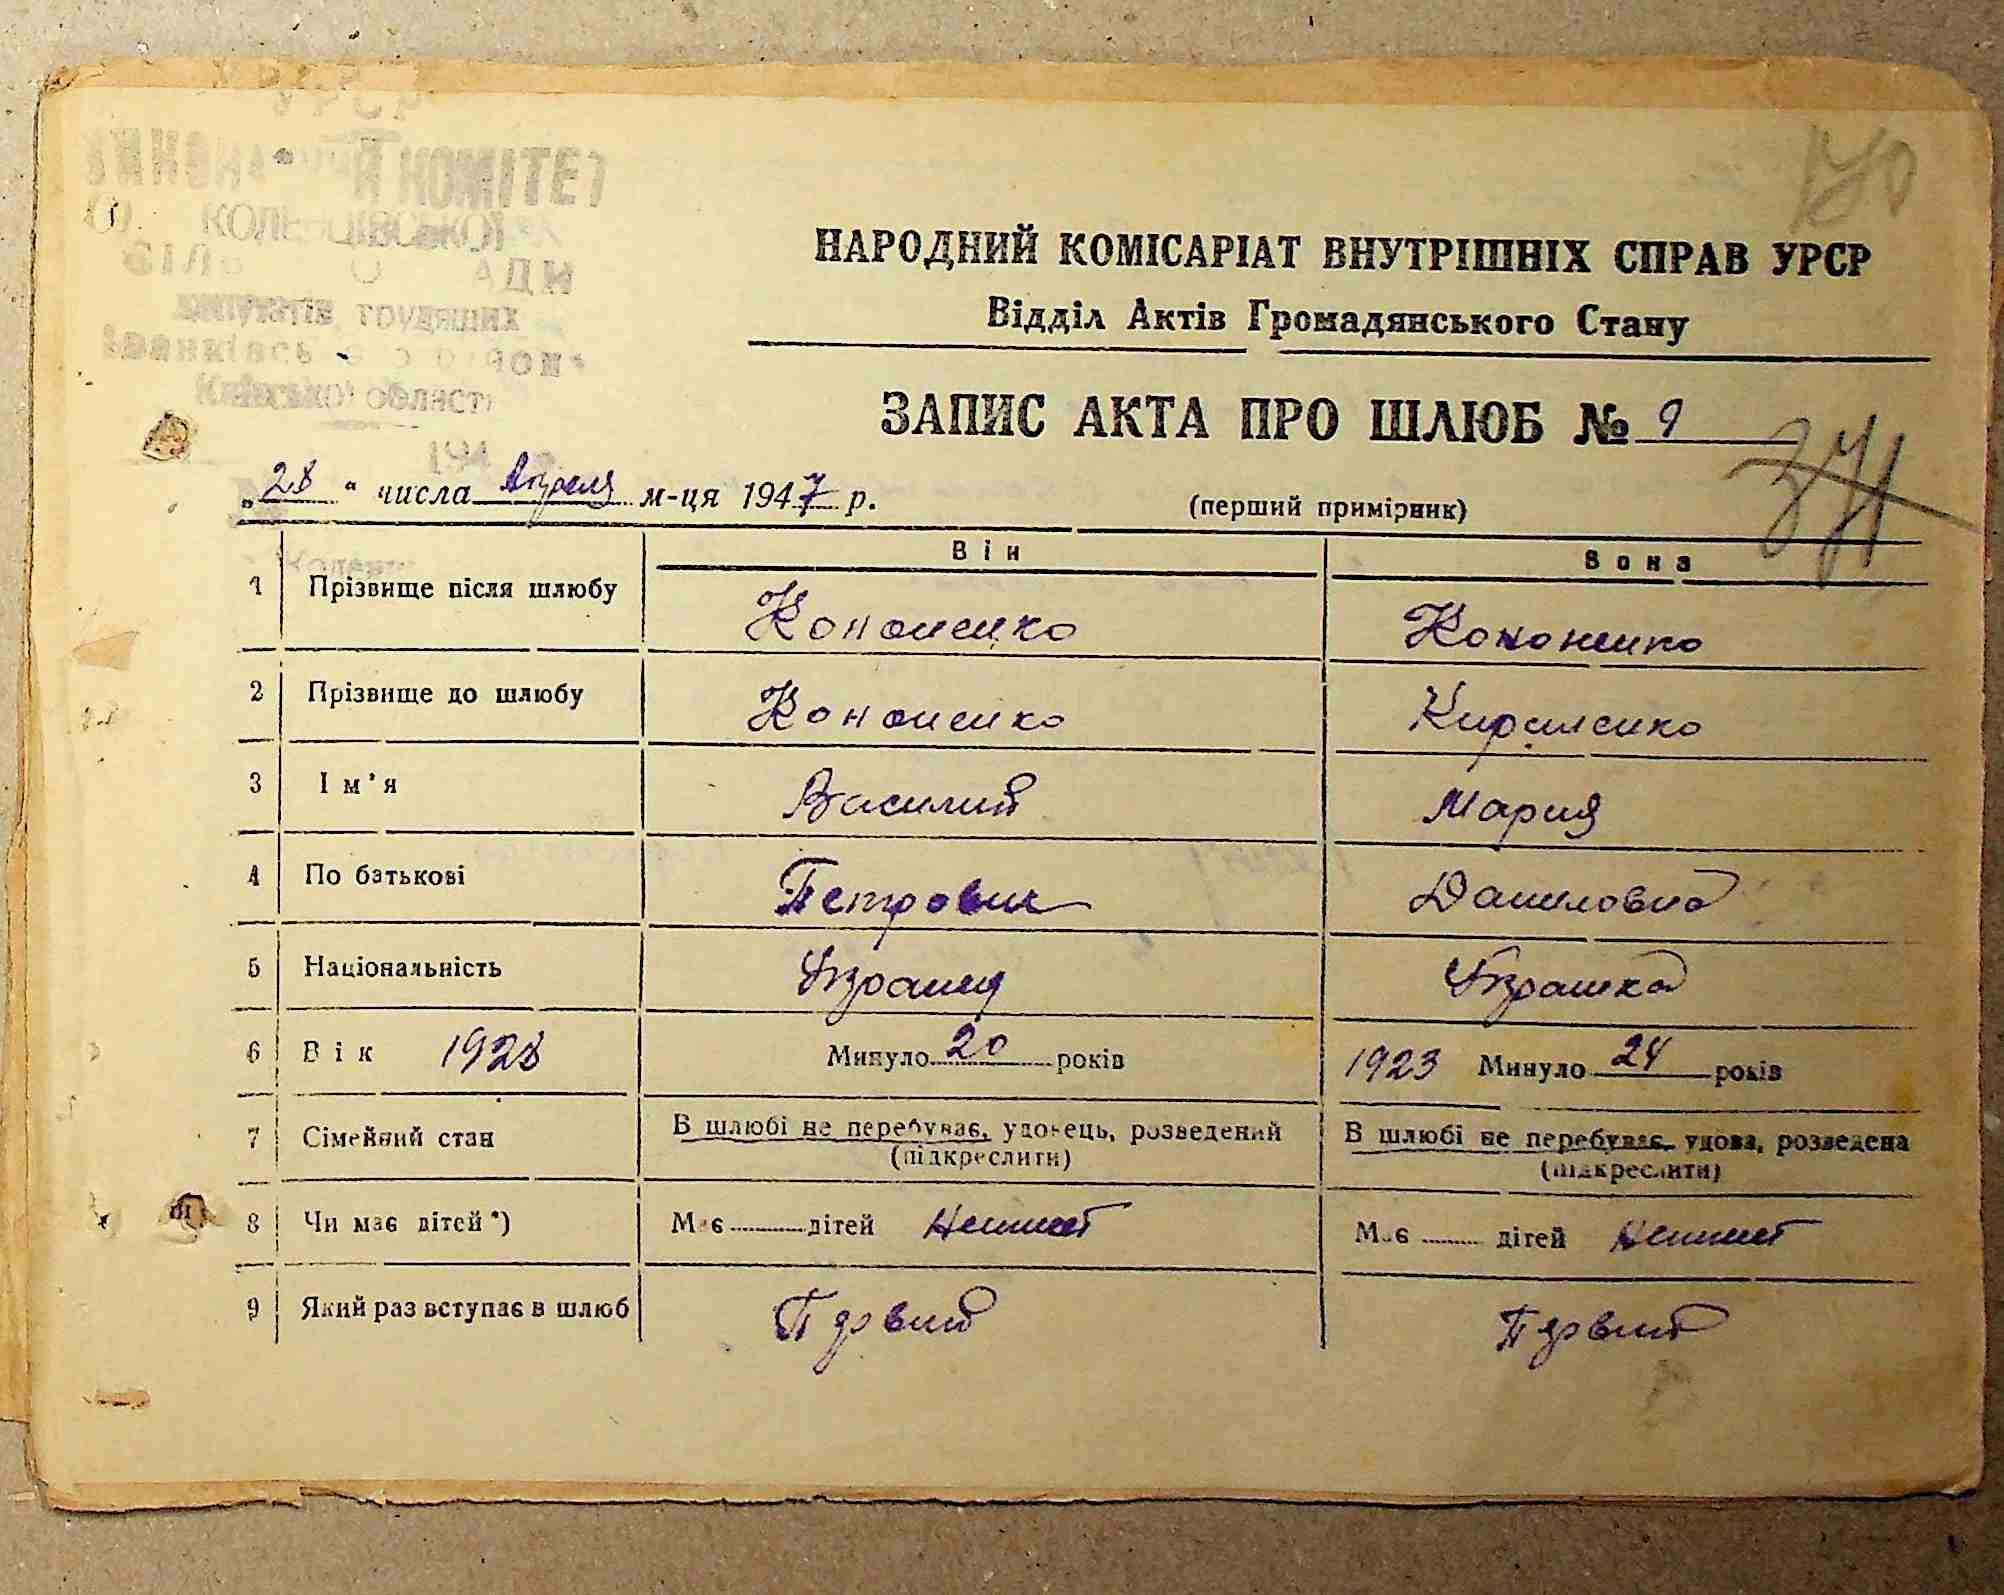 УРСР
КОМІТЕТ
КОЛЕНЦІВСЬКОЇ
депутатів трудящих
Київської області
194
170
НАРОДНИЙ КОМІСАРІАТ ВНУТРІШНІХ СПРАВ УРСР
Відділ Актів Громадянського Стану
ЗАПИС АКТА ПРО ШЛЮБ № 9
371
„28“ числа Апреля м-ця 1947 р.
(перший примірник)
Він Вона
1 Прізвище після шлюбу Кононенко Кононенко
2 Прізвище до шлюбу Кононенко Кириленко
3 Ім'я Василий Мария
4 По батькові Петрович Даниловна
5 Національність
6 Вік 1928 Минуло 20 років 1923 Минуло 24 років
7 Сімейний стан В шлюбі не перебуває, удовець, розведений В шлюбі не перебуває, удова, розведена
(підкреслити) (підкреслити)
8 Чи має дітей*) Має дітей Неимеет Має дітей Неимеет
9 Який раз вступає в шлюб Первий Первий